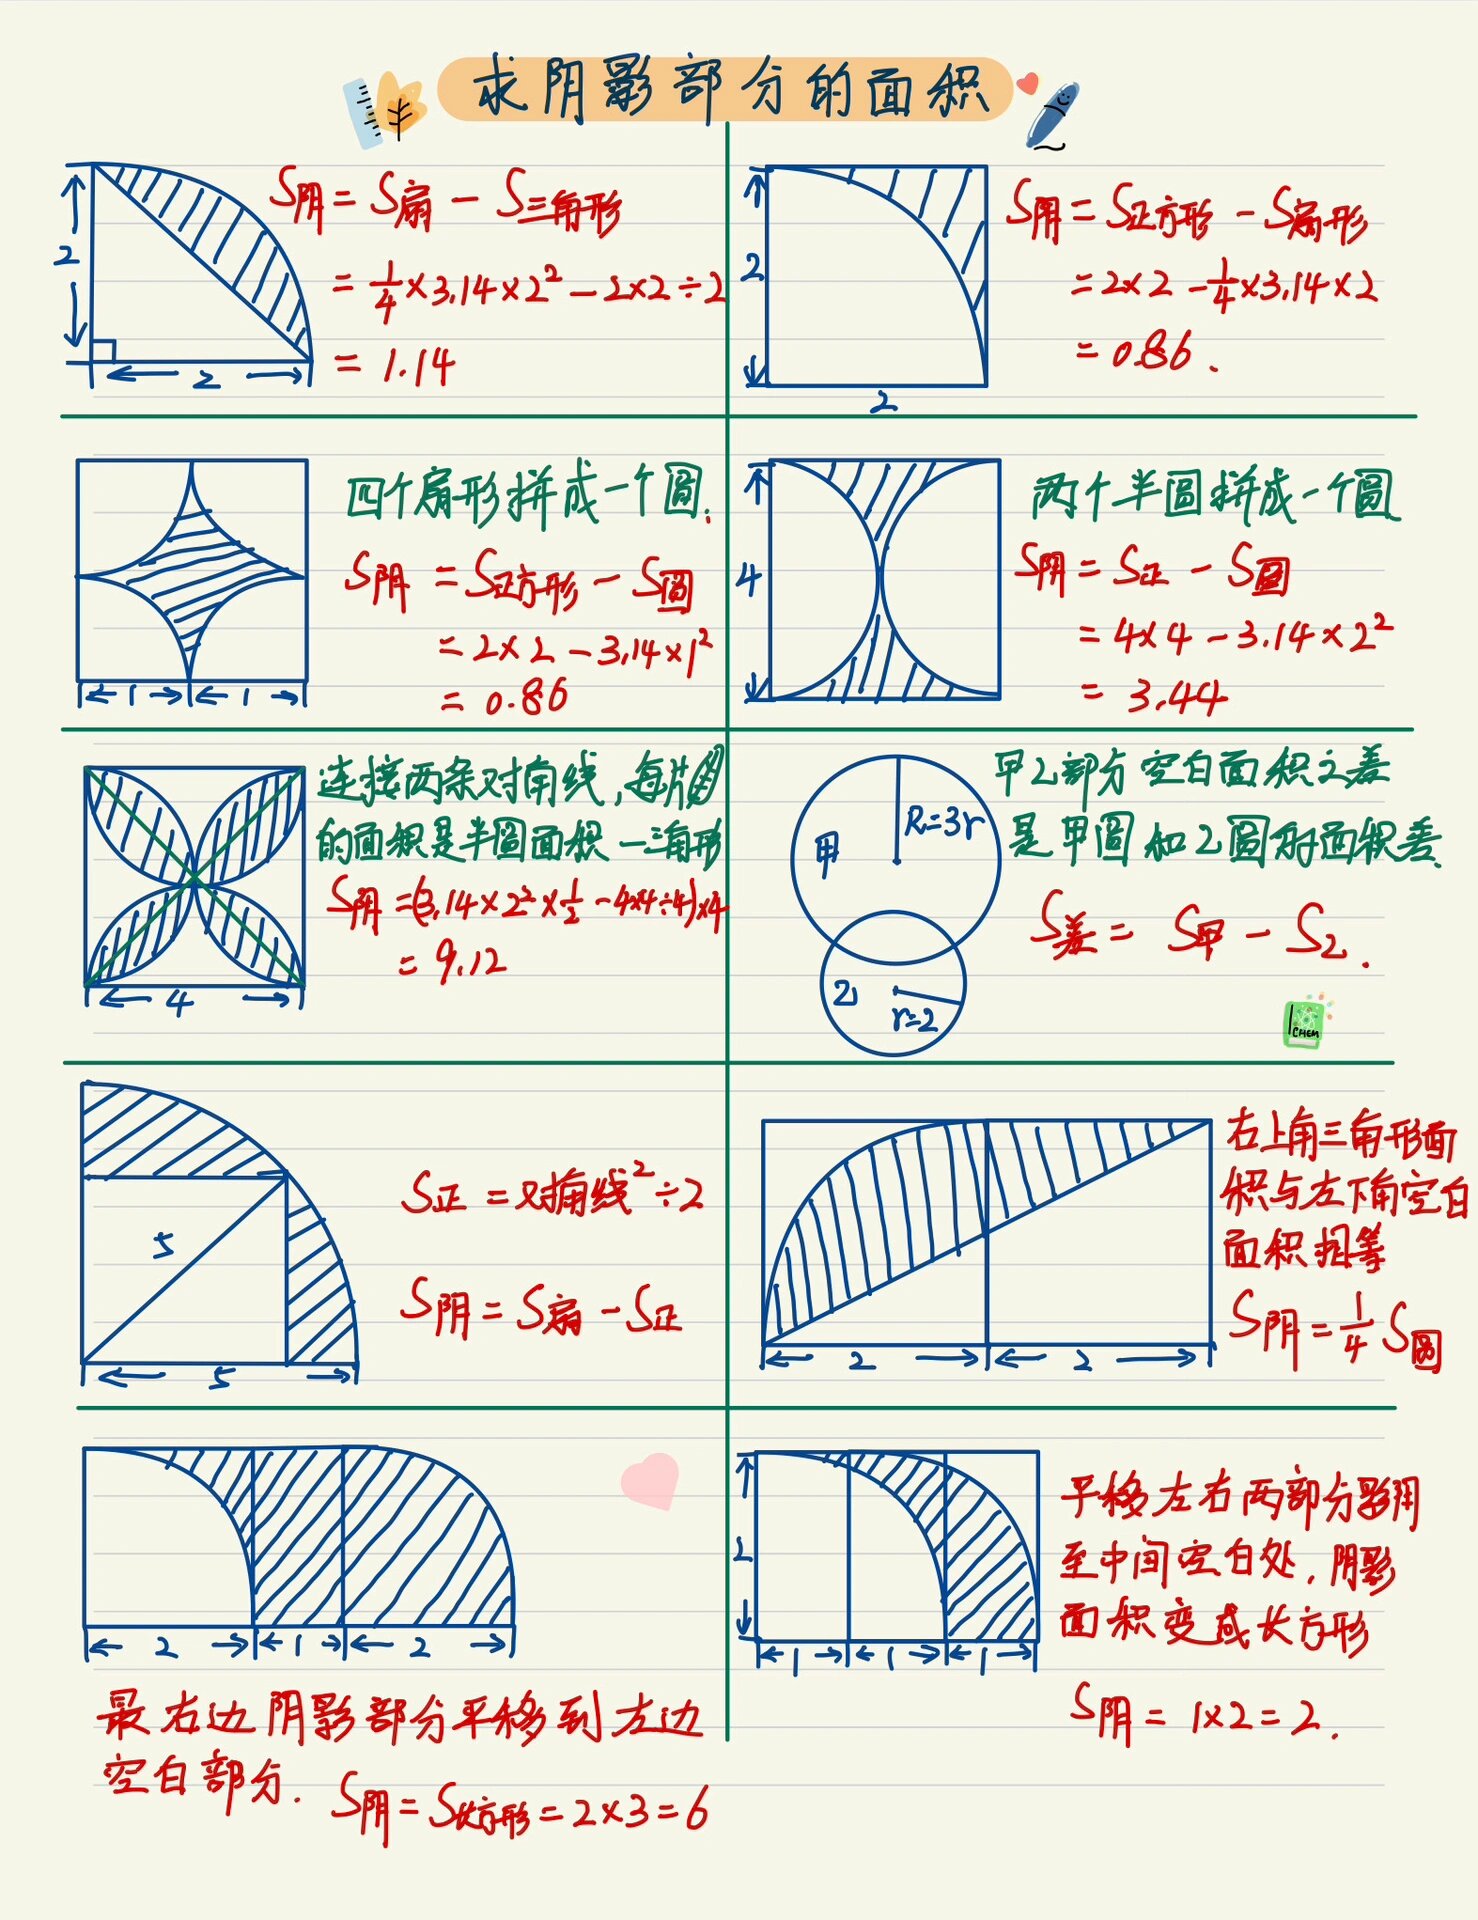 求阴影部分的面积
2
2
S阴 = S扇 - S三角形
= 1/4 × 3.14 × 2² - 2×2÷2
= 1.14
2
2
S阴 = S正方形 - S扇形
= 2×2 - 1/4 × 3.14 × 2
= 0.86.
1 1
四个扇形拼成一个圆.
S阴 = S正方形 - S圆
= 2×2 - 3.14×1²
= 0.86
4
两个半圆拼成一个圆
S阴 = S正 - S圆
= 4×4 - 3.14×2²
= 3.44
4
连接两条对角线,每片
的面积是半圆面积 - 三角形
S阴 = (3.14×2²×1/2 - 4×4÷4)×4
= 9.12
甲
R=3r
乙
r=2
甲乙部分空白面积之差
是甲圆和乙圆的面积差.
S差 = S甲 - S乙.
CHEM
5
5
S正 = 对角线²÷2
S阴 = S扇 - S正
2 2
右上角三角形面
积与左下角空白
面积相等
S阴 = 1/4 S圆
2 1 2
最右边阴影部分平移到左边
空白部分. S阴 = S长方形 = 2×3 = 6
1 1 1
平移左右两部分影阴
至中间空白处,阴影
面积变成长方形
S阴 = 1×2 = 2.